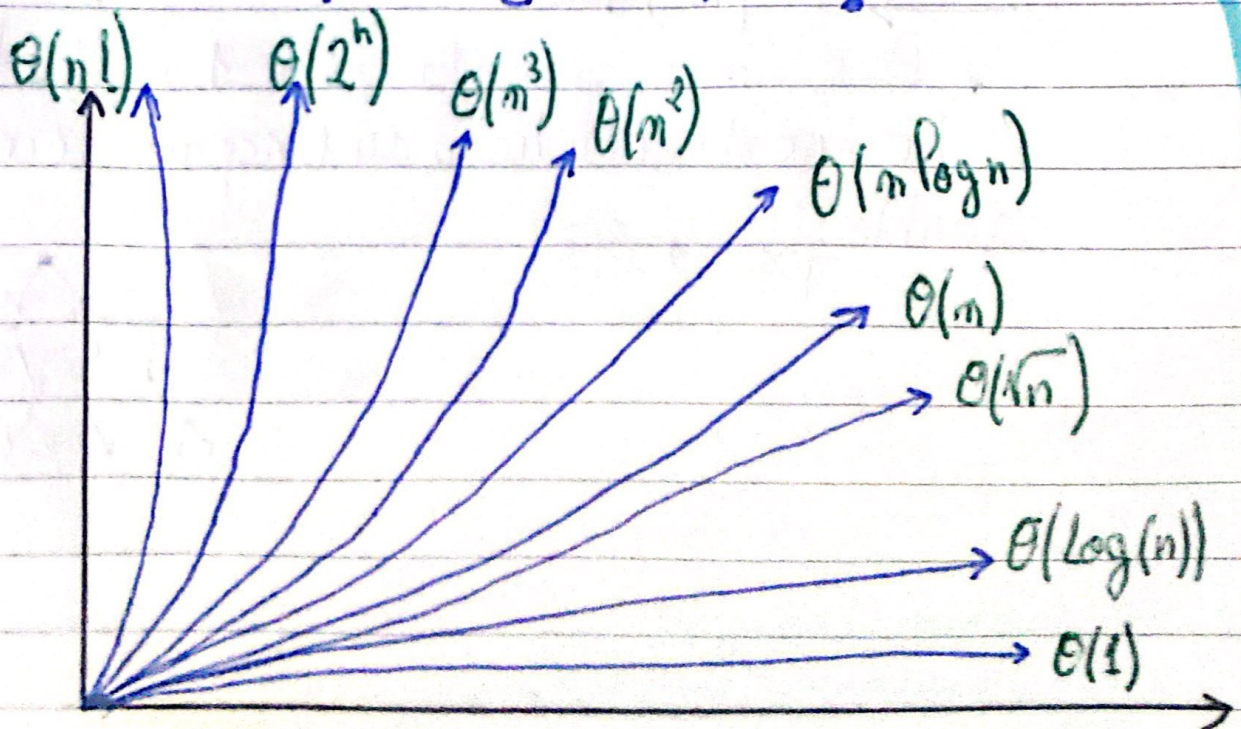 θ(n!)
θ(2ⁿ)
θ(n³)
θ(n²)
θ(n log n)
θ(n)
θ(√n)
θ(Log(n))
θ(1)